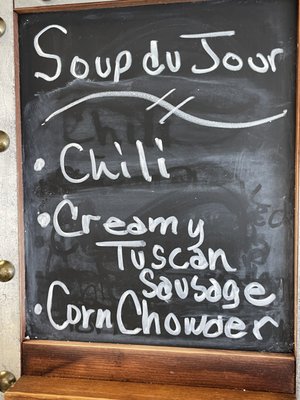 Soup du Jour
• Chili
• Creamy
Tuscan
Sausage
• Corn Chowder